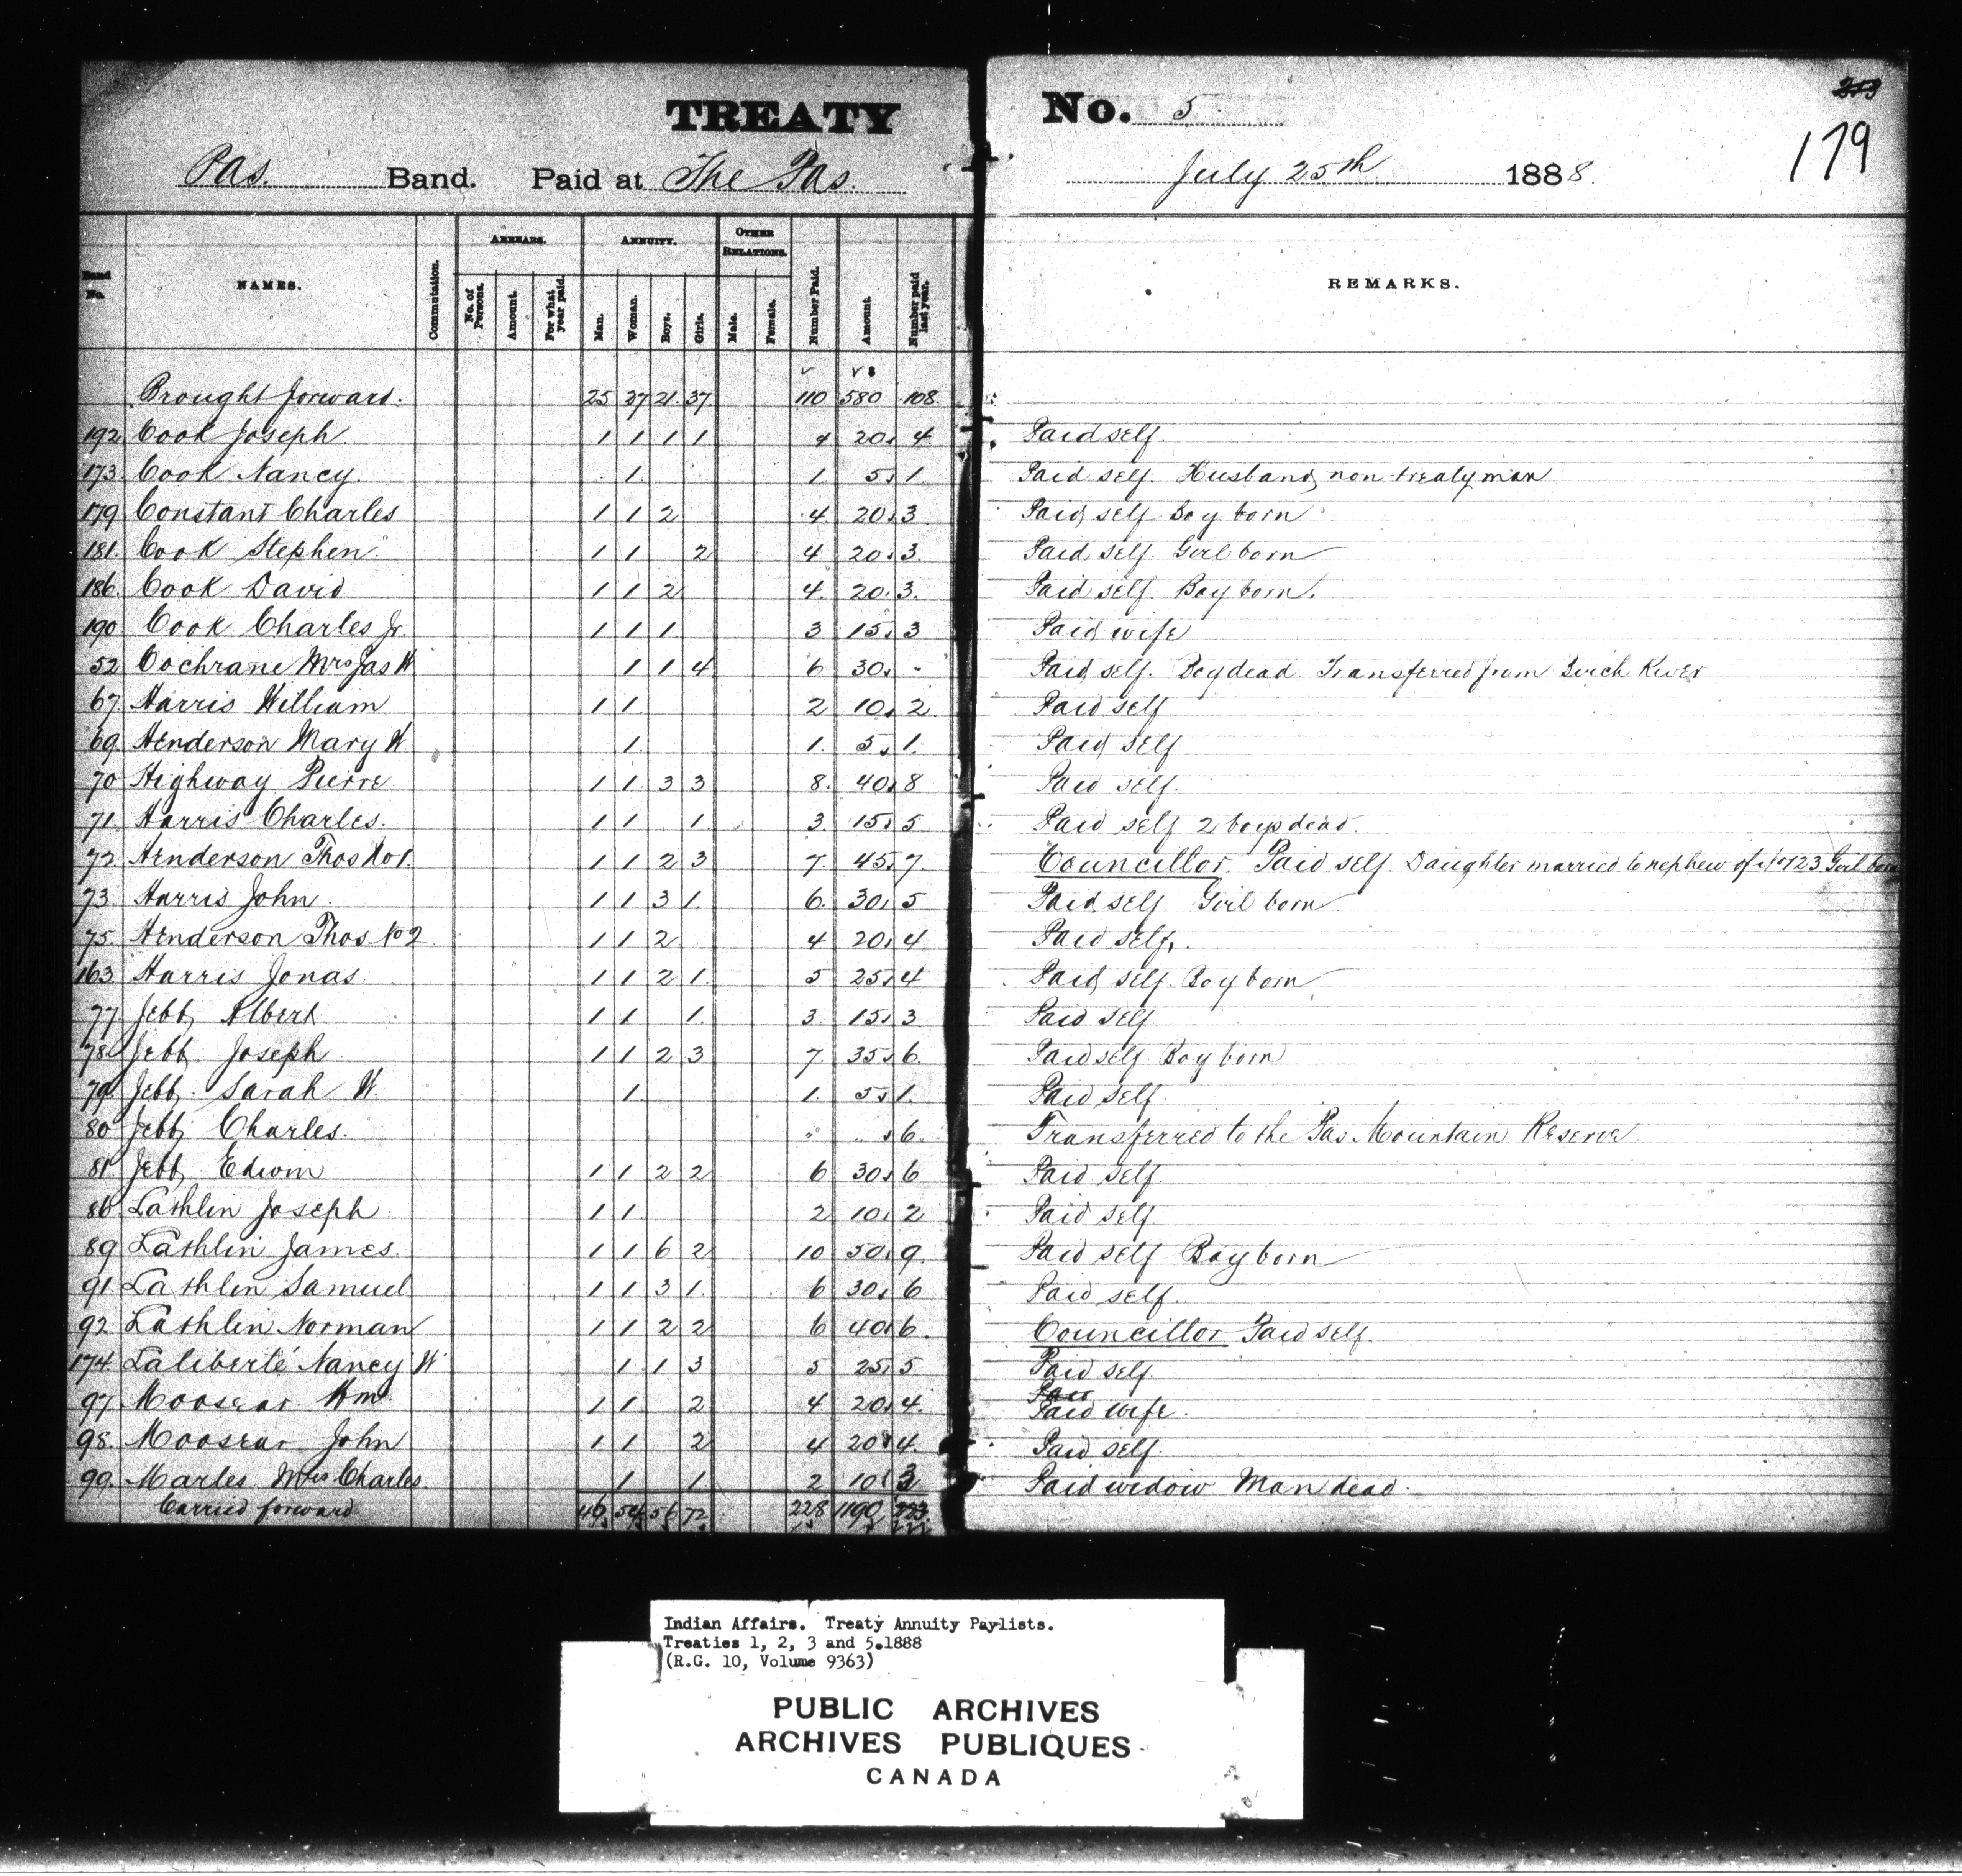 TREATY No. 5
179
Pas. Band. Paid at The Pas. July 25th 1888.
Band No. NAMES. Commutation. ARREARS. No. of Persons. Amount. For what year paid. ANNUITY. Man. Woman. Boys. Girls. OTHER RELATIONS. Male. Female. Number Paid. Amount. Number paid last year. REMARKS.
Brought forward. 25 27 21 37 110 580 108
192 Cook Joseph 1 1 1 1 4 20. 4 Paid self.
173. Cook Nancy. 1. 1. 5. 1. Paid self. Husband non treaty man
179 Constant Charles 1 1 2 4. 20. 3 Paid self Boy born
181. Cook Stephen 1 1 2 4 20. 3. Paid self. Girl born
186. Cook David 1 1 2 4. 20. 3. Paid self. Boy born.
190 Cook Charles Jr. 1 1 1 3 15. 3 Paid wife
52 Cochrane Mrs Jas W 1 1 4 6 30. - Paid self. Boy dead Transferred from Birch River
67. Harris William 1 1. 2 10. 2. Paid self
69. Henderson Mary W 1. 1. 5. 1. Paid self
70 Highway Pierre 1 1. 3 3 8. 40. 8 Paid self.
71. Harris Charles. 1 1 1. 3. 15. 5 Paid self 2 boys dead.
72. Henderson Thos No 1. 1 1 2 3 7. 45. 7. Councillor. Paid self. Daughter married to nephew of No 123 Girl born
73. Harris John 1 1 3 1. 6. 30. 5 Paid self Girl born
75. Henderson Thos No 2 1 1 2 4 20. 4 Paid self.
163. Harris Jonas 1 1 2 1. 5 25. 4 Paid self. Boy born
77 Jebb, Albert 1 1 1. 3. 15. 3 Paid self
78. Jebb. Joseph 1 1 2 3 7. 35. 6. Paid self Boy born
79. Jebb. Sarah W. 1. 1. 5. 1. Paid self.
80 Jebb, Charles. " " 6. Transferred to the Pas Mountain Reserve
81 Jebb, Edwin 1 1 2 2 6 30. 6 Paid self.
86 Lathlin Joseph 1 1. 2 10. 2 Paid self
89 Lathlin James. 1 1 6 2 10 50. 9. Paid self Boy born
91. Lathlin Samuel 1 1. 3 1. 6 30. 6 Paid self.
92. Lathlin Norman 1 1 2 2 6 40. 6. Councillor Paid self.
174. Laliberté Nancy W 1. 1 3 5 25. 5 Paid self.
97. Moosear Wm. 1 1 2 4 20. 4. Paid wife.
98. Moosear John 1 1 2 4 20 4. Paid self.
99. Marles Mrs Charles. 1 1. 2 10 3 Paid widow Man dead.
Carried forward 46 54 56 72 228 1190 223
Indian Affairs. Treaty Annuity Paylists.
Treaties 1, 2, 3 and 5.1888
(R.G. 10, Volume 9363)
PUBLIC ARCHIVES
ARCHIVES PUBLIQUES
CANADA